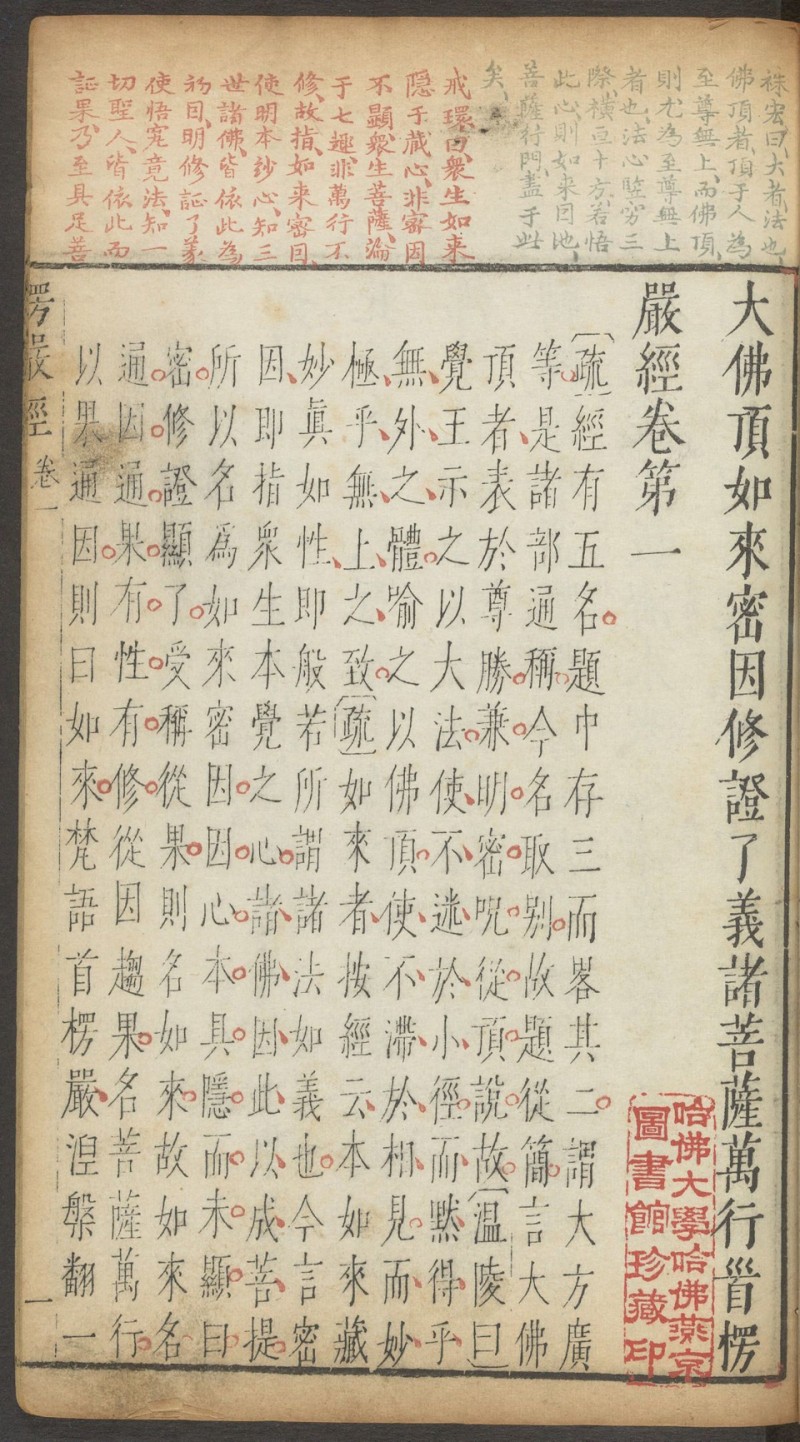 袾宏曰大者法也
佛頂者頂于人為
至尊無上而佛頂
則尤為至尊無上
者也法心豎窮三
際橫亘十方若悟
此心則如來因地
菩薩行門盡于此
矣
戒環曰衆生如來
隱于藏心非密因
不顯衆生菩薩淪
于七趣非萬行不
修故指如來密因
使明本妙心知三
世諸佛皆依此為
初因明修証了義
使悟究竟法知一
切聖人皆依此而
証果乃至具足菩
大佛頂如來密因修證了義諸菩薩萬行首楞
嚴經卷第一
疏經有五名題中存三而畧其二謂大方廣
等是諸部通稱今名取別故題從簡言大佛
頂者表於尊勝兼明密呪從頂說故溫陵曰
覺王示之以大法使不迷於小徑而默得乎
無外之體喻之以佛頂使不滯於相見而妙
極乎無上之致疏如來者按經云本如來藏
妙真如性即般若所謂諸法如義也今言密
因即指衆生本覺之心諸佛因此以成菩提
所以名爲如來密因因心本具隱而未顯曰
密修證顯了受稱從果則名如來故如來名
通因通果有性有修從因趨果名菩薩萬行
以果通因則曰如來梵語首楞嚴涅槃翻一
楞嚴經
卷一
一
哈佛大學哈佛燕京
圖書館珍藏印